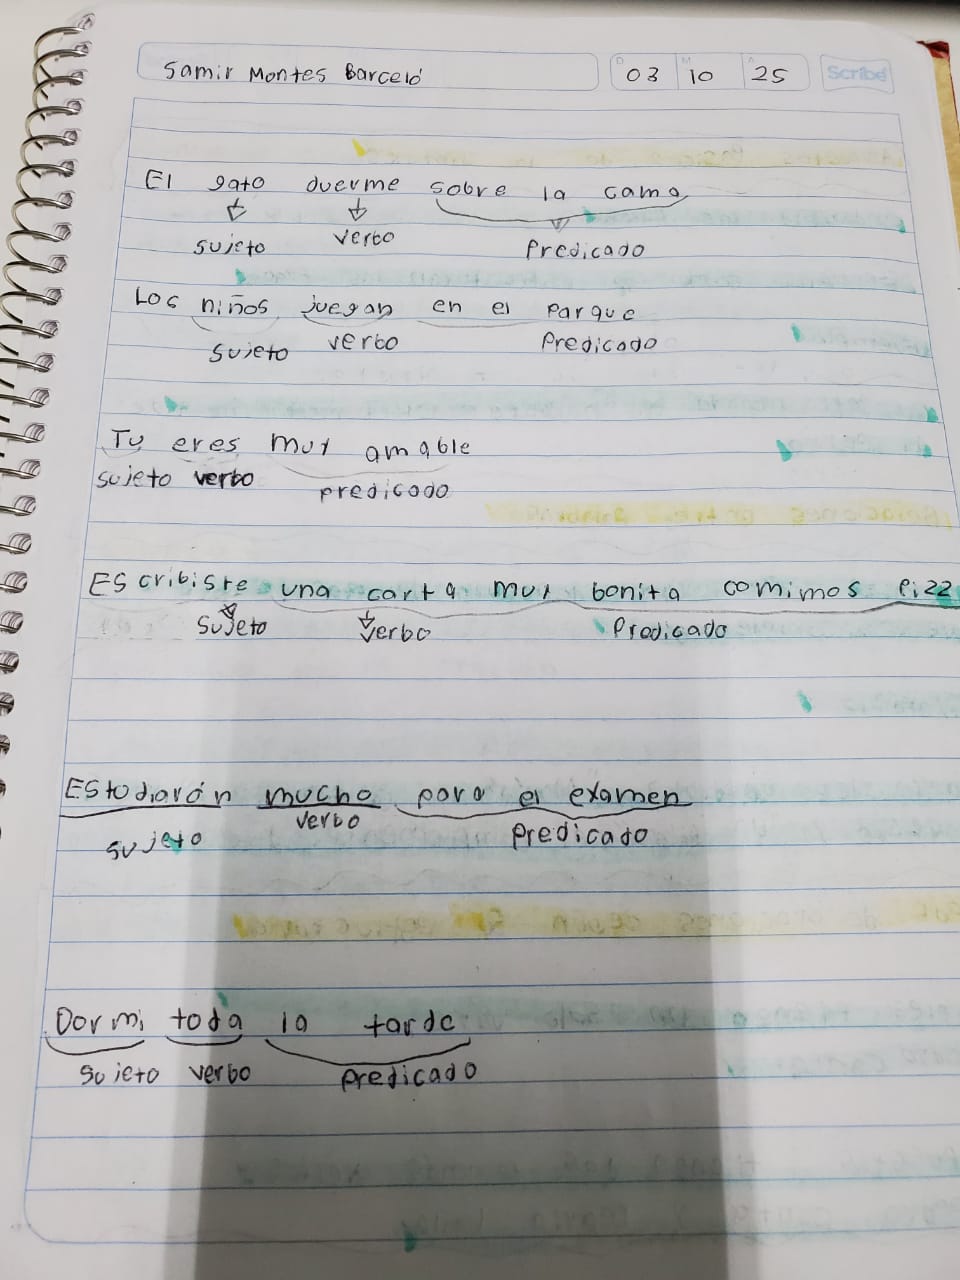 Samir Montes Barceló
D 03 M 10 A 25 Scribe
El gato duerme sobre la cama
sujeto verbo Predicado
Los niños juegan en el Parque
sujeto verbo Predicado
Tu eres muy amable
sujeto verbo predicado
Escribiste una carta muy bonita comimos Pizz
Sujeto verbo Predicado
Estudiarón mucho para el examen
sujeto verbo predicado
Dormi toda la tarde
sujeto verbo predicado